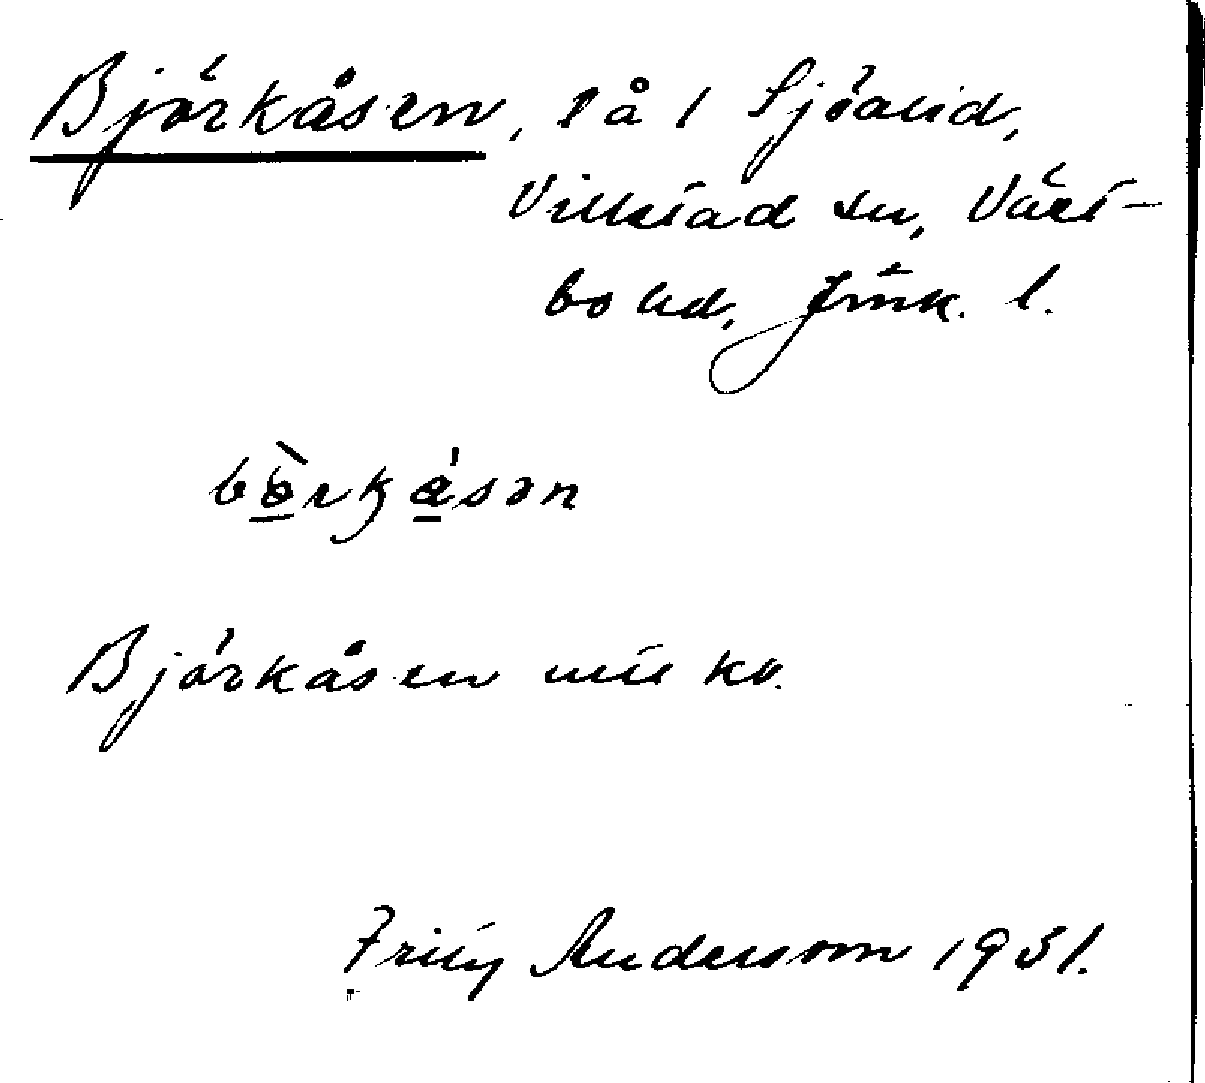 Björkåsen, lä 1 Sjöalid,
Villstad sn, Väst-
bo hd, Jönk. l.
bö̀rkåsən
Björkåsen mtl kv.
Frity Andersson 1931.